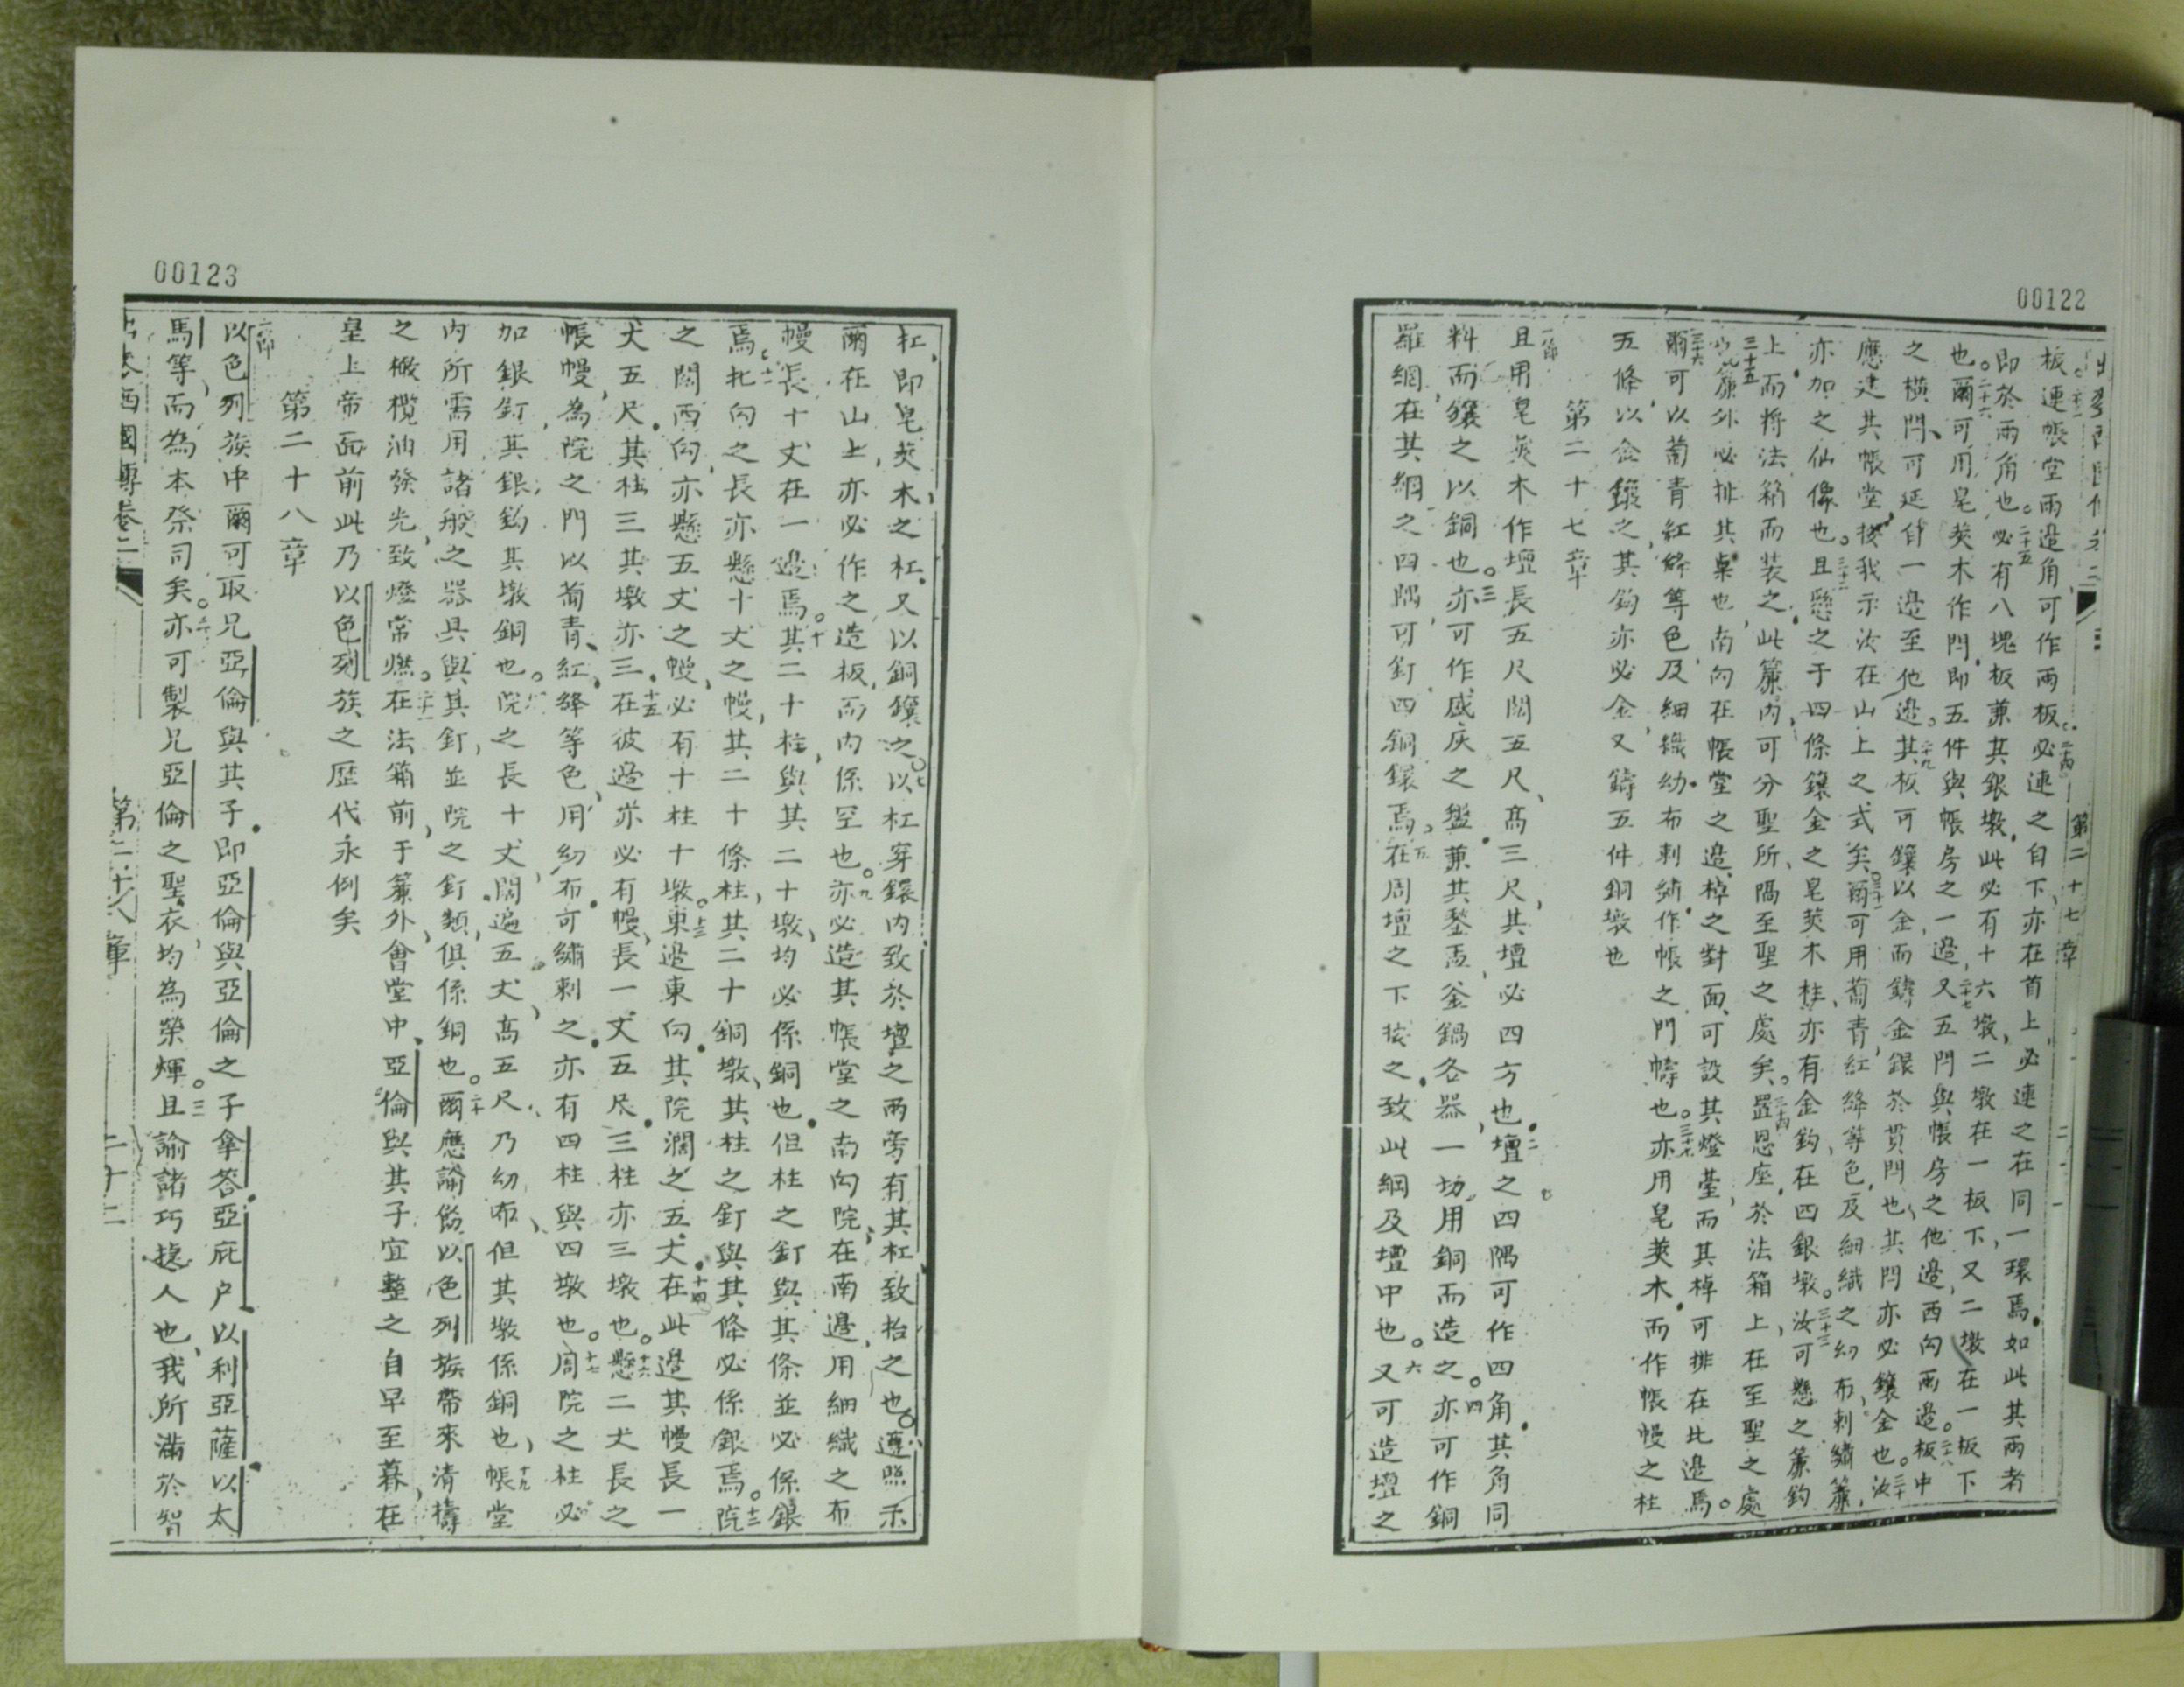 00122
第二十七章
板連帳堂兩邊角可作兩板二十四必連之自下亦在首上必連之在同一環焉如此其兩者
即於兩角也二十五必有八塊板兼其銀墩此必有十六墩二墩在一板下又二墩在一板下
也二十六爾可用皂莢木作閂即五件與帳房之一邊二十七又五閂與帳房之他邊西向兩邊二十八板中
之橫閂可延自一邊至他邊二十九其板可鑲以金而鑄金銀於貫閂也其閂亦必鑲金也三十汝
應建其帳堂按我示汝在山上之式矣三十一爾可用葡青紅絳等色及細織之幼布刺繡簾
亦加之仙像也三十二且懸之于四條鑲金之皂莢木柱亦有金鈎在四銀墩三十三汝可懸之簾鈎
上而將法箱而裝之此簾內可分聖所隔至聖之處矣三十四置恩座於法箱上在至聖之處
三十五簾外必排其桌也南向在帳堂之邊棹之對面可設其燈臺而其棹可排在比邊焉
三十六爾可以葡青紅絳等色及細織幼布刺繡作帳之門幬也三十七亦用皂莢木而作帳幔之柱
五條以金鑲之其鈎亦必金又鑄五件銅墩也
第二十七章
一節且用皂莢木作壇長五尺闊五尺高三尺其壇必四方也二壇之四隅可作四角其角同
料而鑲之以銅也三亦可作盛灰之盤兼其鏊盂釜鍋各器一切用銅而造之四亦可作銅
羅網在其網之四隅可釘四銅鐶焉五在周壇之下按之致此網及壇中也六又可造壇之
00123
杠即皂莢木之杠又以銅鑲之七以杠穿鐶內致於壇之兩旁有其杠致抬之也遵照示
爾在山上亦必作之造板而內係空也九亦必造其帳堂之南向院在南邊用細織之布
幔長十丈在一邊焉十其二十柱與其二十墩均必係銅也但柱之釘與其條並必係銀
焉十一北向之長亦懸十丈之幔其二十條柱其二十銅墩其柱之釘與其條必係銀焉十二院
之闊西向亦懸五丈之幔必有十柱十墩十三東邊東向其院濶之五丈十四在此邊其幔長一
丈五尺其柱三其墩亦三十五在彼邊亦必有幔長一丈五尺三柱亦三墩也十六懸二丈長之
帳幔為院之門以葡青紅絳等色用幼布可繡刺之亦有四柱與四墩也十七周院之柱必
加銀釘其銀鈎其墩銅也院之長十丈闊遍五丈高五尺乃幼布但其墩係銅也十九帳堂
內所需用諸般之器具與其釘並院之釘類俱係銅也二十爾應諭飭以色列族帶來清擣
之橄欖油發光致燈常燃二十一在法箱前于簾外會堂中亞倫與其子宜整之自早至暮在
皇上帝面前此乃以色列族之歷代永例矣
第二十八章
一節以色列族中爾可取兄亞倫與其子即亞倫與亞倫之子拿答亞庇户以利亞薩以太
馬等而為本祭司矣二亦可製兄亞倫之聖衣均為榮輝三且諭諸巧㨗人也我所滿於智
西國傳卷二 第二十八章 二十二